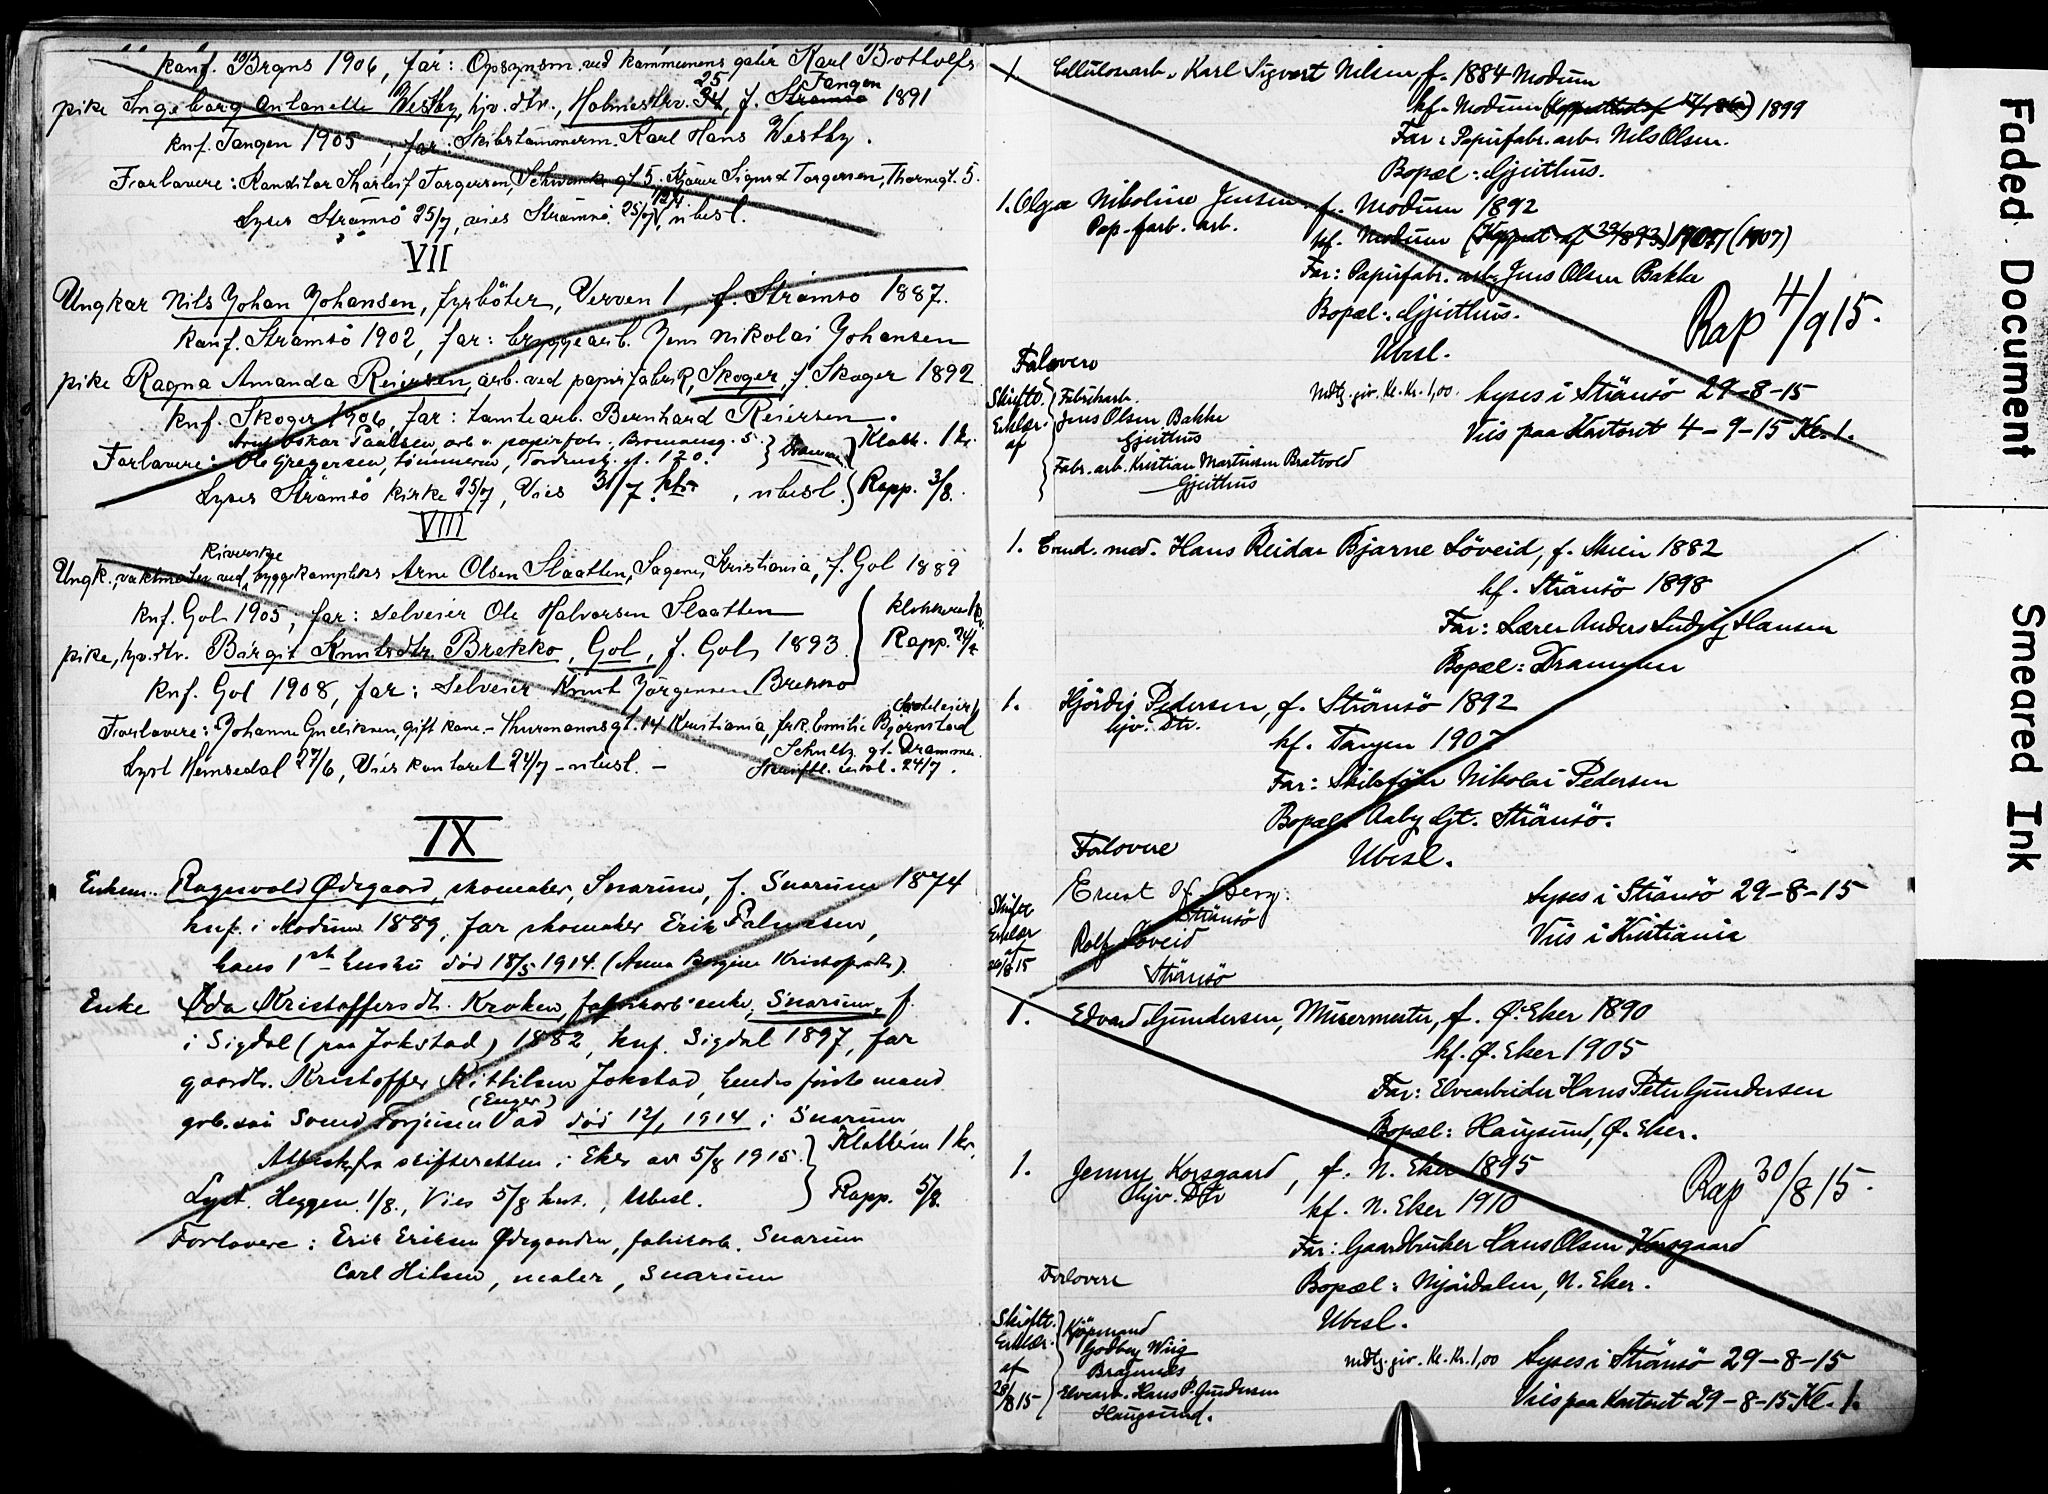 konf. Brgns 1906, far: Opsynsm. ved kommunens gater Karl Bottolfs
pike Ingeborg Antonette Westby, hjv. dtr., Holmestrv. 25, f. Tangen 1891
knf. Tangen 1905, far: Skibstømmerm. Karl Hans Westby.
Forlovere: Konditor Thorleif Torgersen, Schwencks gt. 5. Sigurd Torgersen, Thornegt. 5.
Lyses Strømsø 25/7, vies Strømsø 25/7, ubesl.
VII
Ungkar Nils Johan Johansen, fyrbøter, Verven 1, f. Strømsø 1887.
konf. Strømsø 1902, far: bryggearb. Jens Nikolai Johansen
pike Ragna Amanda Reiersen, arb. ved papirfabrik, Skoger, f. Skoger 1892
knf. Skoger 1906, far: tomtearb. Bernhard Reiersen.
Arnt Oskar Paulsen, arb. v. papirfabr.
Forlovere: Ole Gregersen, tømmerm, Tordenskj. gt. 120. } Drammen } Klokk. 1 kr.
Lyses Strømsø kirke 25/7, Vies 31/7 kts. , ubesl. } Rapp. 3/8.
VIII
Ungk., vaktmester ved byggekompleks Arne Olsen Slaatten, Sagene, Kristiania, f. Gol 1889
knf. Gol 1905, far: selveier Ole Halvorsen Slaatten
pike, hjv. dtr. Birgit Knutsdtr. Brekko, Gol, f. Gol, 1893. Rapp. 24/7
knf. Gol 1908, far: Selveier Knut Jørgensen Brekko
Forlovere: Johanne Gulliksen, gift kone - Thurmannsgt. 14 Kristiania, frk. Emilie Bjørnstad
Schultz gt. Drammen.
Lyst Hemsedal 27/6, Vies kontoret 24/7 - ubesl. - Skriftl. 24/7.
IX
Enkem. Ragnvald Ødegaard, skomaker, Snarum, f. Snarum 1874
knf. i Modum 1889, far skomaker Erik
hans 1ste hustru død 18/5 1914. (Anna Kristofersdtr).
Enke Oda Kristoffersdt. Kroken, fabrikarb enke, Snarum, f.
i Sigdal (paa Jokstad) 1882, knf. Sigdal 1897, far
gaardbr. Kristoffer Kittilsen Jokstad, hendes første mand
(Enger)
Svend Torjusen Vad død 12/1 1914 i Snarum
Attest fra skifteretten i Eker av 5/8 1915. } Klokkeren 1 kr.
Lyst. Heggen 1/8., Vies 5/8 knt., Ubesl. } Rapp. 5/8.
Forlovere: Erik Eriksen Ødegaarden, fabrikarb. Snarum
Carl Nilsen, maler, Snarum
1 Cellulosearb. Karl Sigvart Nilsen, f. 1884 Modum
kf. Modum 1899
Far: Papirfabr. arb. Nils Olsen.
Bopæl: Gjeithus.
1. Olga Nikoline Jensen f. Modum 1892
Pap. fabr. arb.
kf. Modum (1907)
Far: Papirfabr. arb. Jens Olsen Bakke
Bopæl: Gjeithus.
Rap 4/9 15.
Ubesl.
Forlovere
Skriftl. Erklær. af
Fabrikarb. Jens Olsen Bakke
Gjeithus
Fabr. arb. Kristian Martinsen Bratvold
Gjeithus
Mdtg. giv. Kl. Kr. 1,00. Lyses i Strömsö 29-8-15
Viis paa Kontoret 4-9-15 Kl. 1.
1. Cand. med. Hans Reidar Bjarne Löveid, f. Skien 1882
kf. Strömsö 1898
Far: Lærer Anders Ludvig Hansen
Bopæl: Drammen
1. Hjördis Pedersen, f. Strömsö 1892
hjv. Dtr.
kf. Tangen 1907
Far: Skibsförer Nikolai Pedersen
Bopæl: Aaby Gt. Strömsö.
Forlovere
Ubesl.
Ernst Of. Berg.
Strömsö
Skriftl Erklær af 26/8 15
Rolf Löveid
Strömsö
Lyses i Strömsö 29-8-15
Viis i Kristiania
1. Edvard Gundersen, Murermester, f. Ø. Eker 1890
kf. Ø. Eker 1905
Far: Elvearbeider Hans Peter Gundersen
Bopæl: Haugsund, Ø. Eker.
1. Jenny Korsgaard, f. N. Eker 1895
hjv. Dtr
kf. N. Eker 1910
Rap 30/8 15.
Far: Gaardbruker Hans Olsen Korsgaard
Bopæl: Mjöndalen, N. Eker.
Forlovere
Ubesl.
Skriftl. Erklær. af 28/8 15
Kjöpmand
Godboy Wiig
Bragernes
Elvearb. Hans P. Gundersen
Haugsund.
mdtg. giv. Kl. Kr. 1,00 Lyses i Strömsö 29-8-15
Viis paa Kontoret 29-8-15 Kl. 1.
Faded Document
Smeared Ink